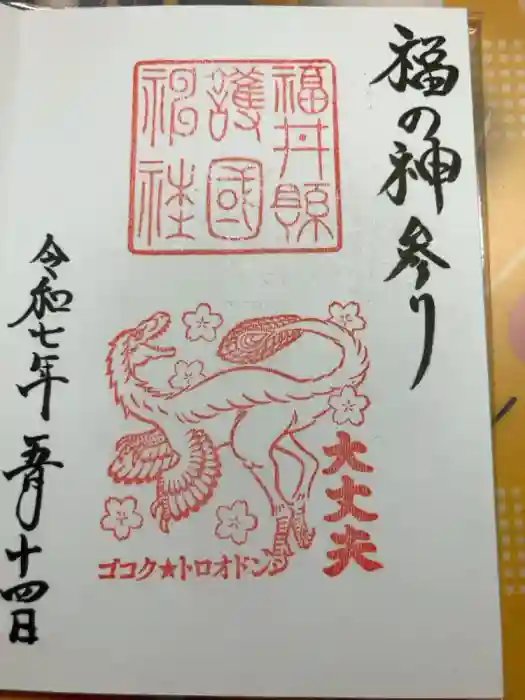 福の神参り
福井縣
護國
神社
大丈夫
ゴコク★トロオドン
令和七年 五月十四日